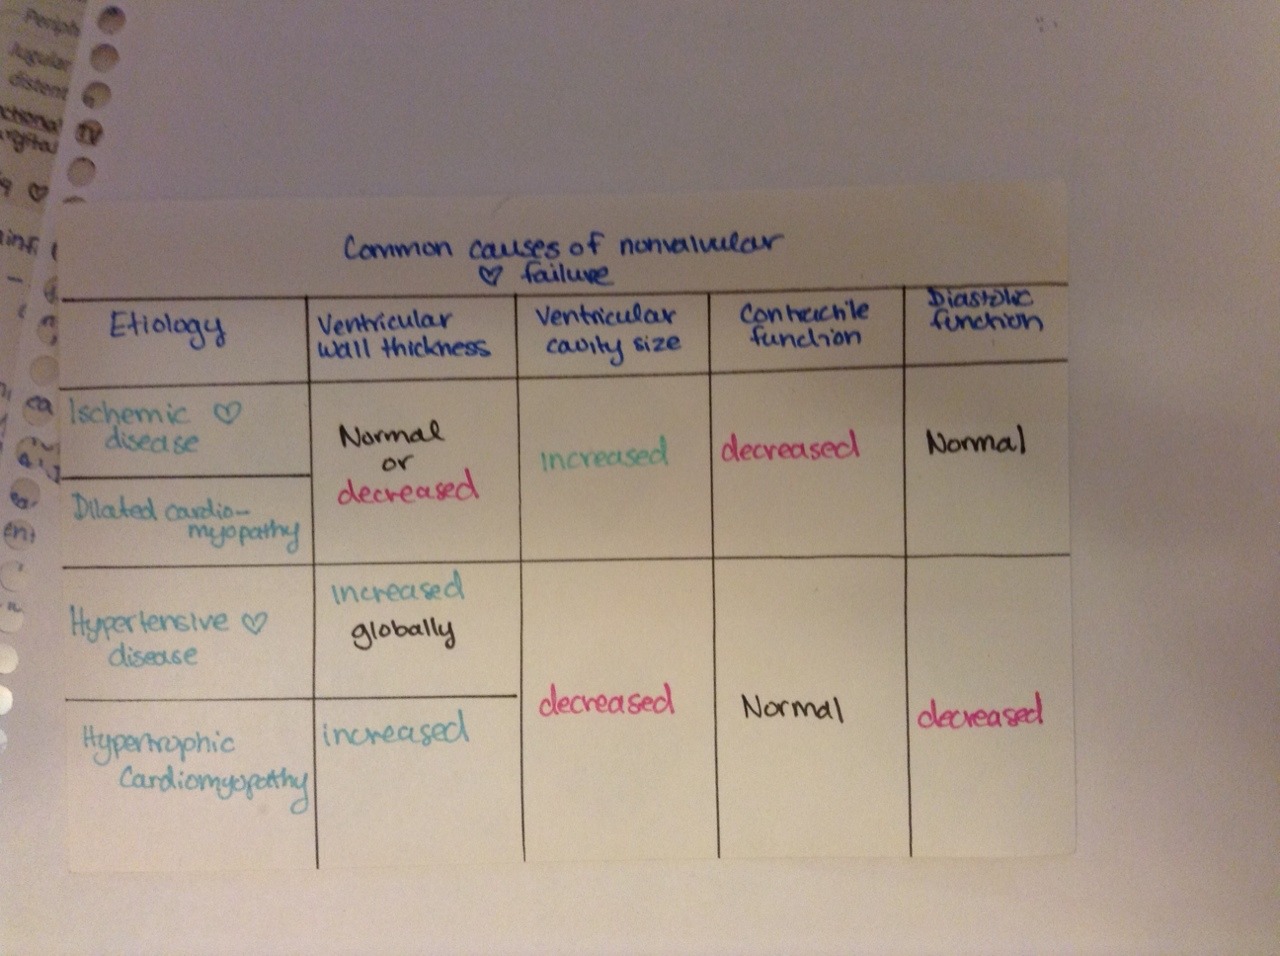 Periph
Jugular
distent
TV
Common causes of nonvalvular
♡ failure
Etiology
Ventricular
wall thickness
Ventricular
cavity size
Contractile
function
Diastolic
function
Ischemic ♡
disease
Normal
or
decreased
increased
decreased
Normal
Dilated cardio-
myopathy
Hypertensive ♡
disease
increased
globally
decreased
Normal
decreased
Hypertrophic
Cardiomyopathy
increased